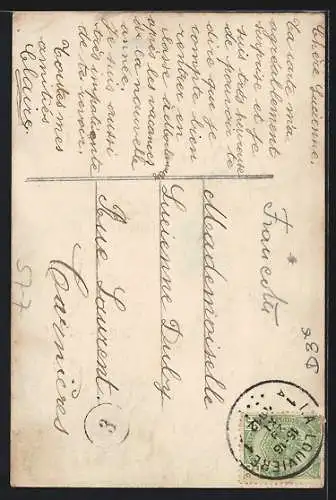 Chère Lucienne,
Ta carte m'a
agréablement
surprise et je
suis très heureuse
de pouvoir te
dire que je
compte bien
rentrer en
classe
après les vacances
de la nouvelle
année.
Je suis aussi
très impatiente
de te revoir.
Toutes mes
amitiés
Claire
Mademoiselle
Lucienne Duly
Rue Laurent
Carnières
E
577
LOUVIÈRE